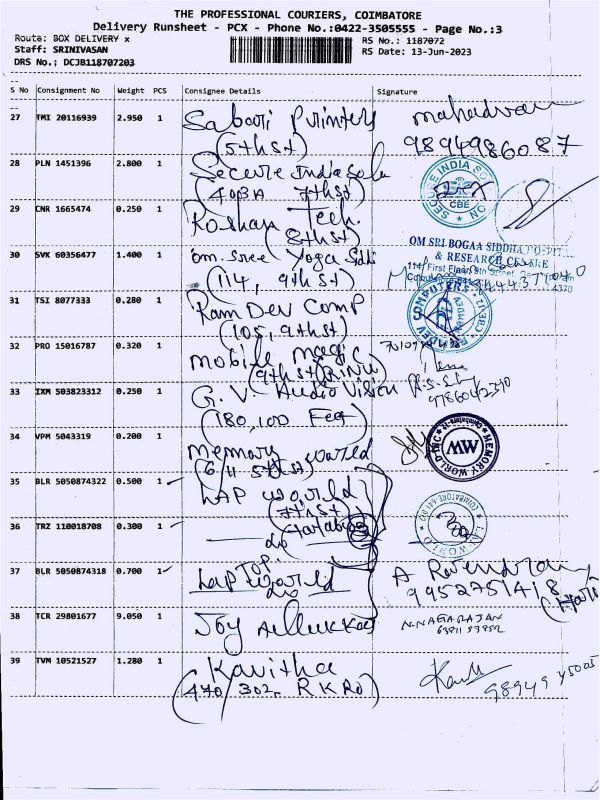 THE PROFESSIONAL COURIERS, COIMBATORE
Delivery Runsheet - PCX - Phone No.:0422-3505555 - Page No.:3
Route: BOX DELIVERY x
RS No.: 1187072
Staff: SRINIVASAN
RS Date: 13-Jun-2023
DRS No.: DCJB118707203
S No Consignment No Weight PCS Consignee Details Signature
27 TMI 20116939 2.950 1 Sabari Printers
(5th st) 9894986087
28 PLN 1451396 2.800 1 Secure India Solu
(403A 7th st)
SECURE INDIA
CBE
29 CNR 1665474 0.250 1 Roshan Tech.
(8th st)
30 SVK 60356477 1.400 1 om. Sree Yoga Sidhi
(114, 9th st)
OM SRI BOGAA SIDDHA
& RESEARCH CENTRE
114, First Floor, 9th Street
31 TSI 8077333 0.280 1 Ram Dev Comp
(105, 9th st)
RAMDEV COMPUTERS
32 PRO 15016787 0.320 1 mobile magic
(9th st)
33 IXM 503823312 0.250 1 G.V Audio Vision
(180, 100 Feet)
34 VPM 5043319 0.200 1 memory world
MEMORY WORLD INC
MW
35 BLR 5050874322 0.500 1 LAP world
(7th st)
36 TRZ 110018708 0.300 1 do
COIMBATORE
37 BLR 5050874318 0.700 1 Lap Top world
do
A Ravendran
9952751418
38 TCR 29801677 9.050 1 Joy Allukkas
N.NAGARAJAN
39 TVM 10521527 1.280 1 Kavitha
(470/302, R K RD)
98949 45005